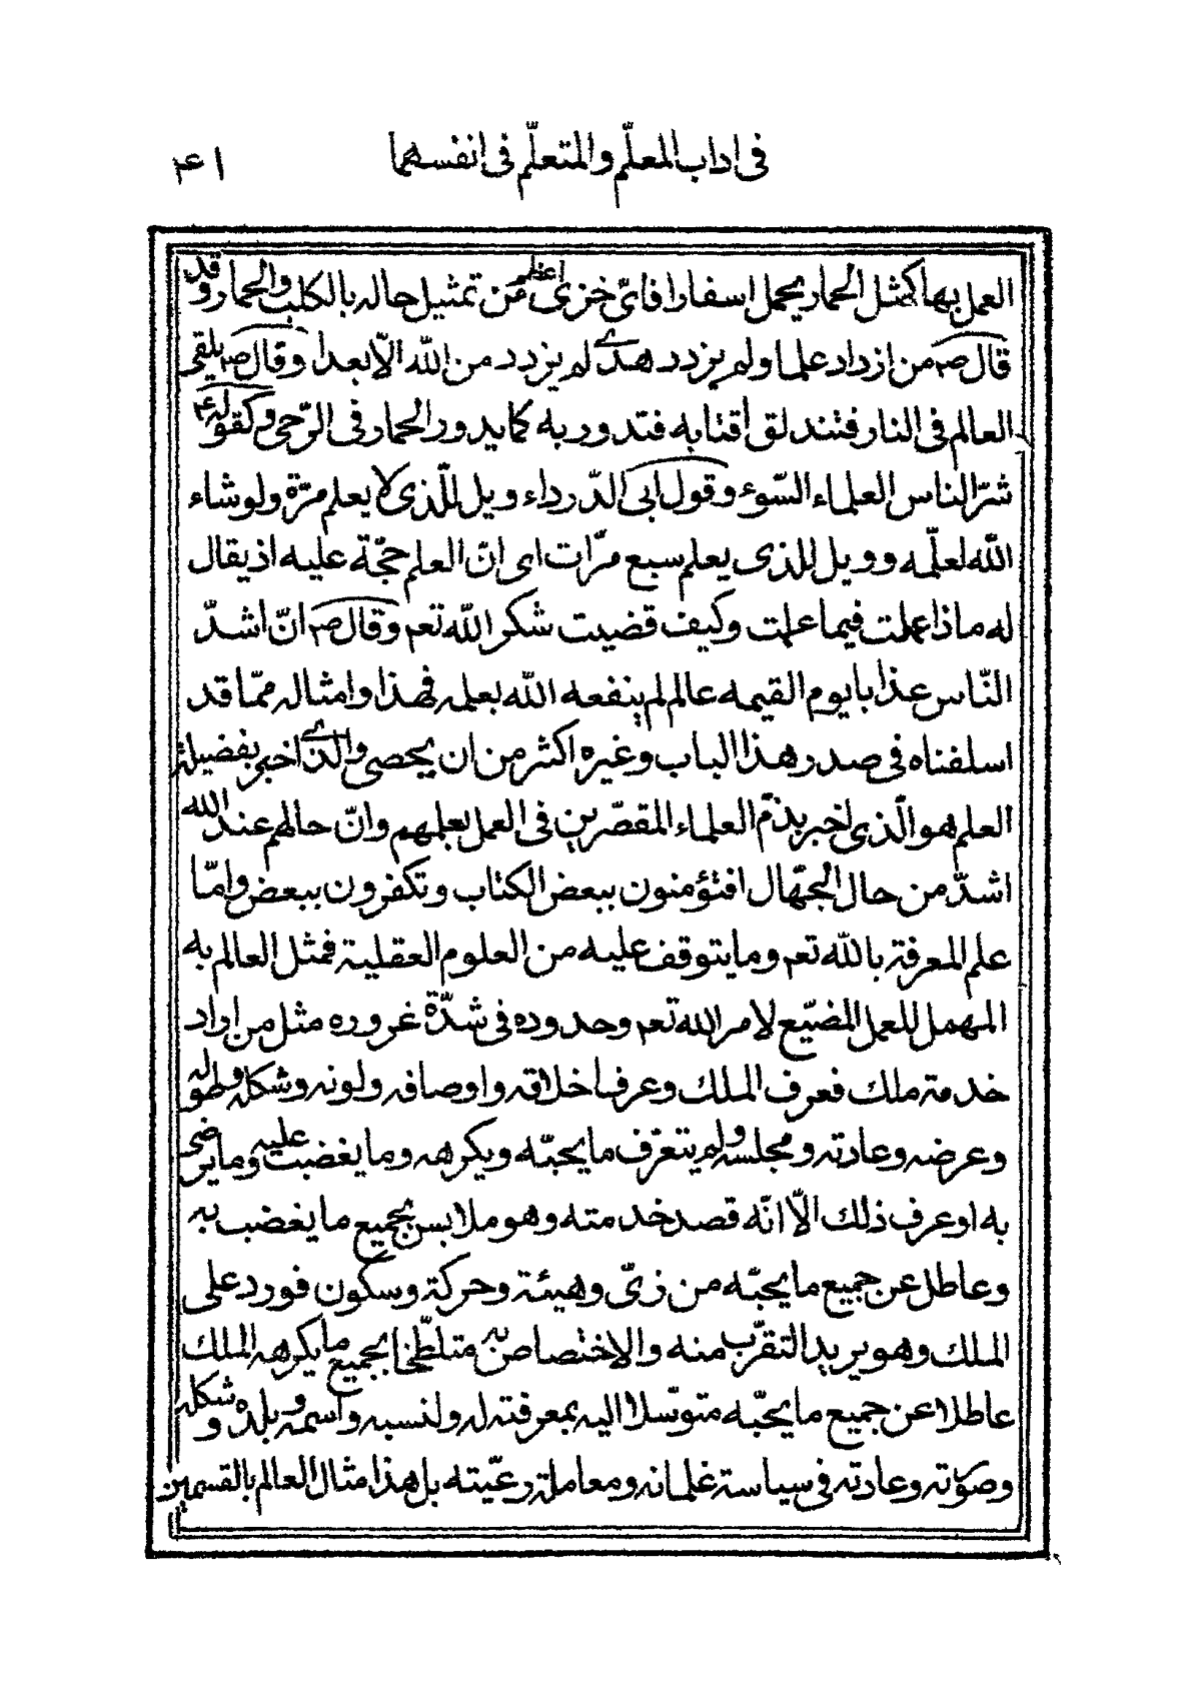 فى اداب المعلّم والمتعلّم فى انفسهما ۴۱
العمل بها كمثل الحمار يحمل اسفارا فاىّ خزى اعظم من تمثيل حاله بالكلب والحمار وقد
قال ص من ازداد علما ولم يزدد هدى لم يزدد من الله الّا بعدا وقال ص يلقى
العالم فى النار فتندلق اقتابه فتدور به كما يدور الحمار فى الرّحى وكقوله ع
شرّ الناس العلماء السّوء وقول ابى الدّرداء ويل للّذى لا يعلم مرّة ولو شاء
الله لعلّمه وويل للذى يعلم سبع مرّات اى انّ العلم حجّة عليه اذ يقال
له ماذا عملت فيما علمت وكيف قضيت شكر الله تعم وقال ص انّ اشدّ
النّاس عذابا يوم القيمه عالم لم ينفعه الله بعلمه فهذا وامثاله ممّا قد
اسلفناه فى صدر هذا الباب وغيره اكثر من ان يحصى والذى اخبر بفضيلة
العلم هو الّذى اخبر بذمّ العلماء المقصّرين فى العمل بعلمهم وانّ حالهم عند الله
اشدّ من حال الجهّال افتؤمنون ببعض الكتاب وتكفرون ببعض وامّا
علم المعرفة بالله تعم وما يتوقف عليه من العلوم العقلية فمثل العالم به
المهمل للعمل المضيّع لامر الله تعم وحدوده فى شدّة غروره مثل من اراد
خدمة ملك فعرف الملك وعرف اخلاقه واوصافه ولونه وشكله وطوله
وعرضه وعادته ومجلسه ولم يتعرّف ما يحبّه ويكرهه وما يغضب عليه وما يرضى
به او عرف ذلك الّا انّه قصد خدمته وهو ملابس بجميع ما يغضب به
وعاطل عن جميع ما يحبّه من زىّ وهيئة وحركة وسكون فورد على
الملك وهو يريد التقرّب منه والاختصاص به متلطّخا بجميع ما يكرهه الملك
عاطلا عن جميع ما يحبّه متوسّلا اليه بمعرفته له ولنسبه واسمه وبلده وشكله
وصوته وعادته فى سياسة غلمانه ومعاملة رعيّته بل هذا مثال العالم بالقسمين